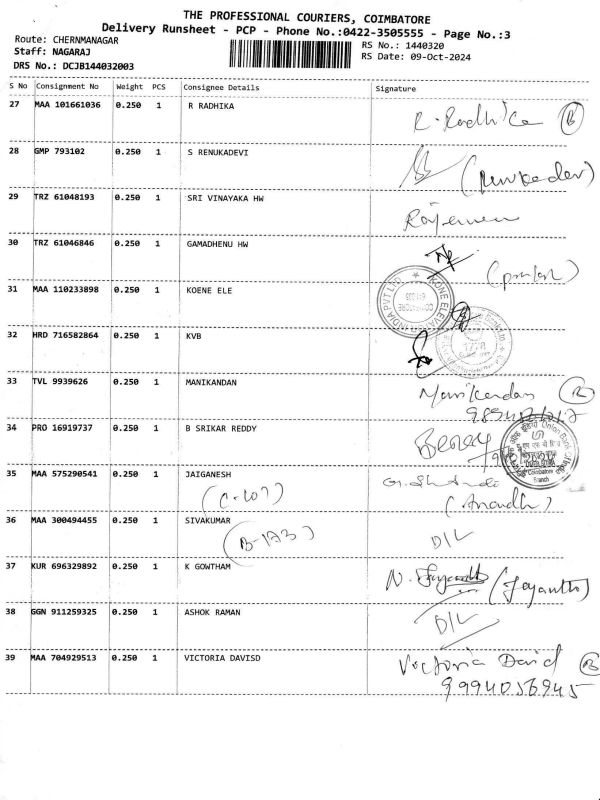 THE PROFESSIONAL COURIERS, COIMBATORE
Delivery Runsheet - PCP - Phone No.:0422-3505555 - Page No.:3
Route: CHERNMANAGAR
RS No.: 1440320
Staff: NAGARAJ
RS Date: 09-Oct-2024
DRS No.: DCJB144032003
S No Consignment No Weight PCS Consignee Details Signature
27 MAA 101661036 0.250 1 R RADHIKA R. Radhika R
28 GMP 793102 0.250 1 S RENUKADEVI (Renukadevi)
29 TRZ 61048193 0.250 1 SRI VINAYAKA HW
30 TRZ 61046846 0.250 1 GAMADHENU HW
31 MAA 110233898 0.250 1 KOENE ELE
KONE ELEVATOR INDIA PVT LTD
COIMBATORE
32 HRD 716582864 0.250 1 KVB
33 TVL 9939626 0.250 1 MANIKANDAN Manikandan R
34 PRO 16919737 0.250 1 B SRIKAR REDDY
Union Bank of India
Coimbatore
Branch
35 MAA 575290541 0.250 1 JAIGANESH
(C-107) (Anandh)
36 MAA 300494455 0.250 1 SIVAKUMAR D/L
(B-173)
37 KUR 696329892 0.250 1 K GOWTHAM N. Jayanth (Jayanth)
38 GGN 911259325 0.250 1 ASHOK RAMAN D/L
39 MAA 704929513 0.250 1 VICTORIA DAVISD Victoria David R
9994056945